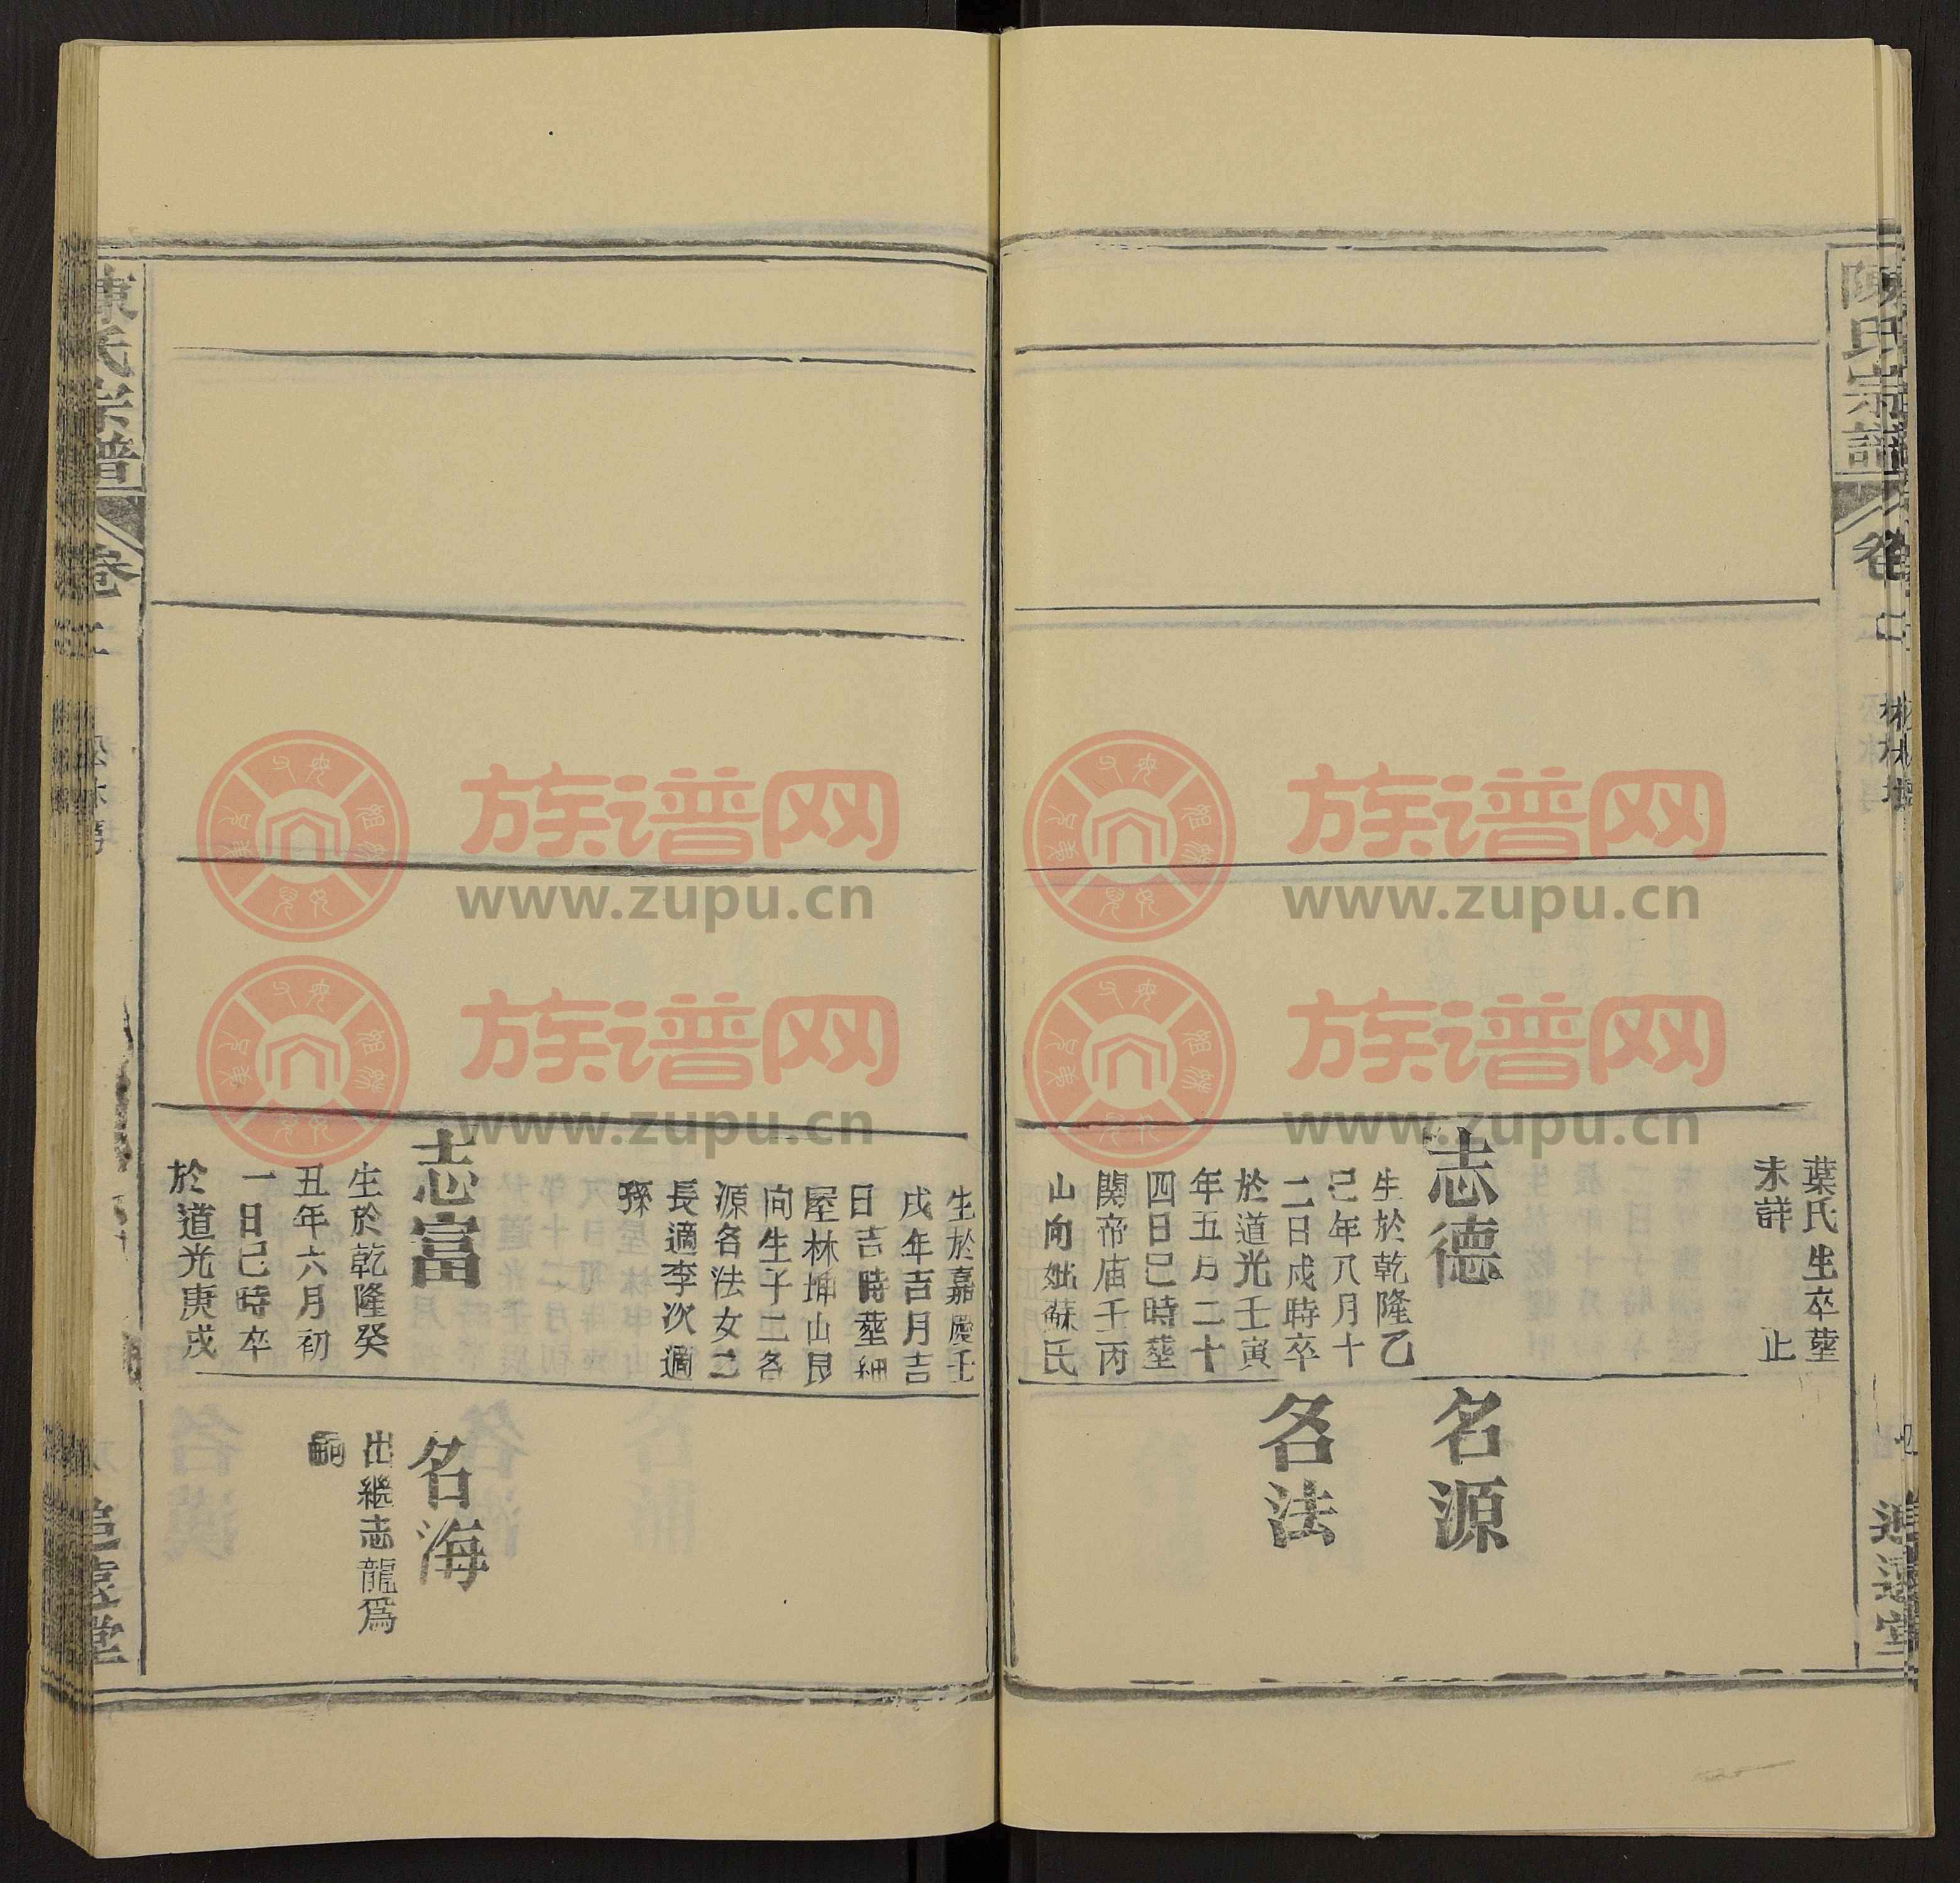 陳氏宗譜
卷二
葉氏生卒塟
未詳 止
志德
生於乾隆乙
己年八月十
二日戍時卒
於道光壬寅
年五月二十
四日巳時塟
関帝庙壬丙
山向妣蘇氏
名源
名法
生於嘉慶壬
戍年吉月吉
日吉時塟細
屋林埔山艮
向生子二名
源名法女二
長適李次適
孫
志富
生於乾隆癸
丑年六月初
一日己時卒
於道光庚戍
名海
出繼志龍為
嗣
陳氏宗譜
卷二
追遠堂
族谱网
www.zupu.cn
族谱网
www.zupu.cn
族谱网
www.zupu.cn
族谱网
www.zupu.cn